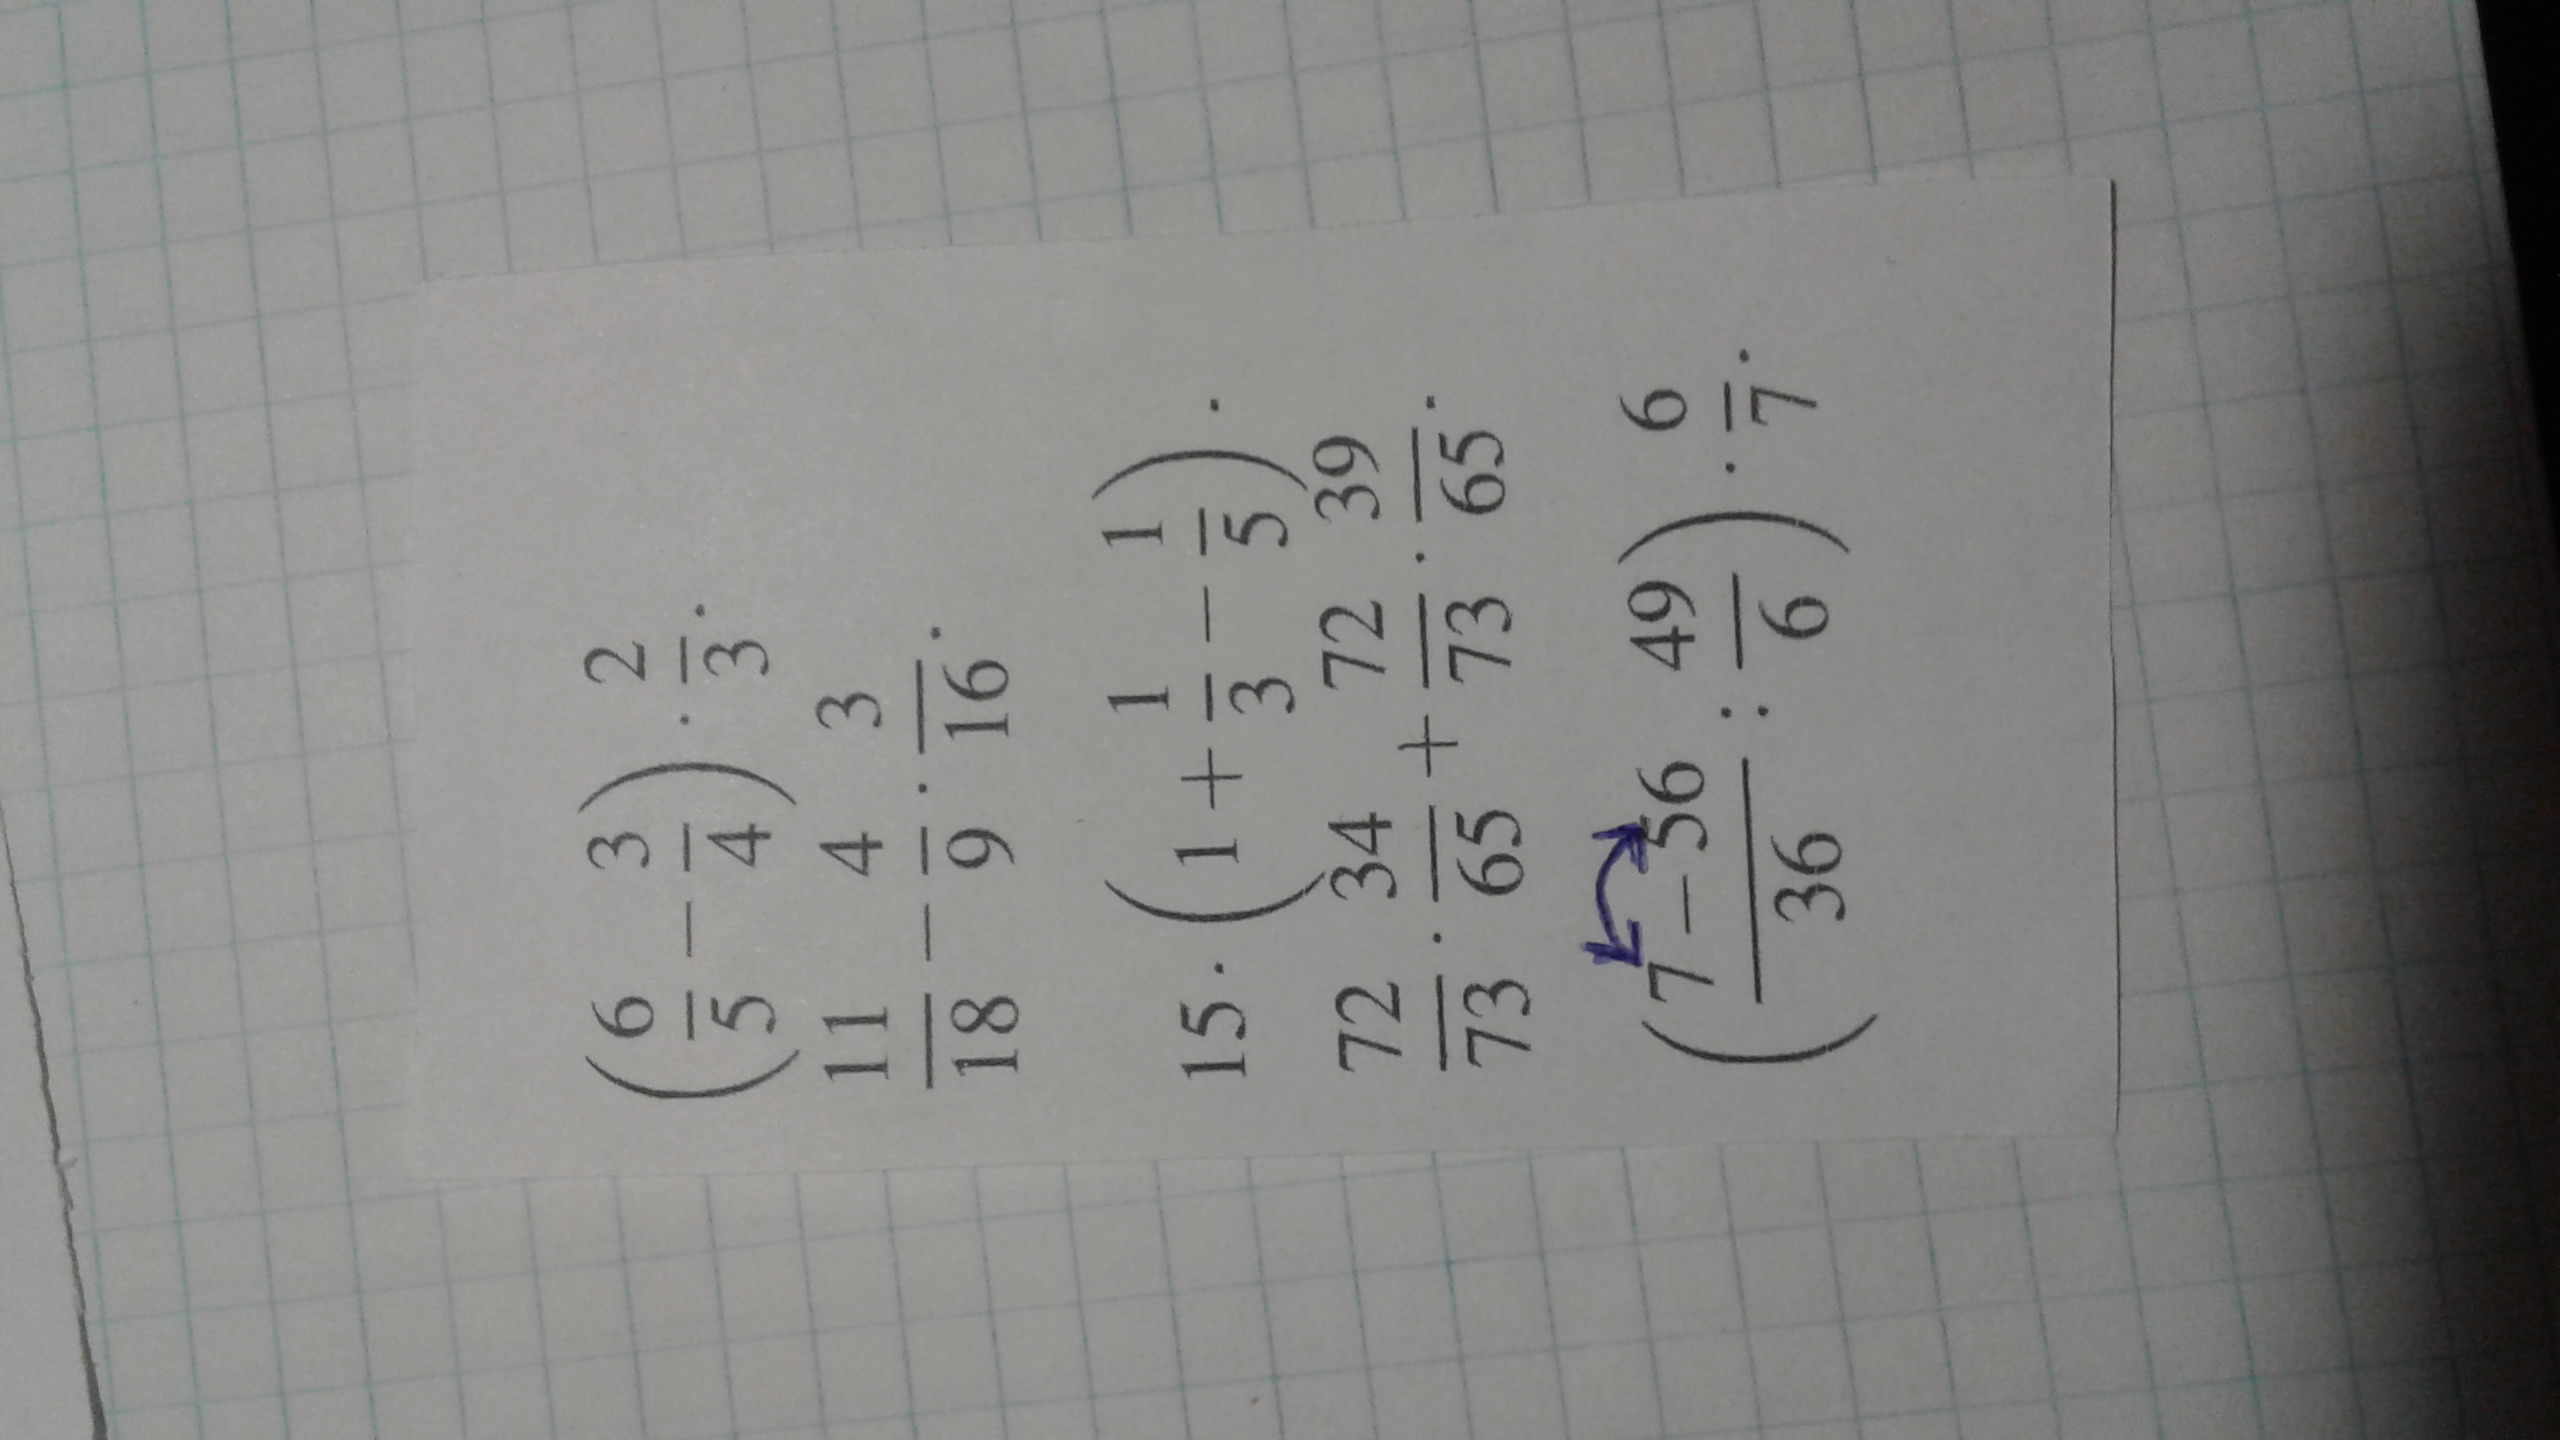 (6/5 − 3/4) · 2/3.
11/18 − 4/9 · 3/16.
15 · (1 + 1/3 − 1/5).
72/73 · 34/65 + 72/73 · 39/65.
(7−56/36 : 49/6) · 6/7.